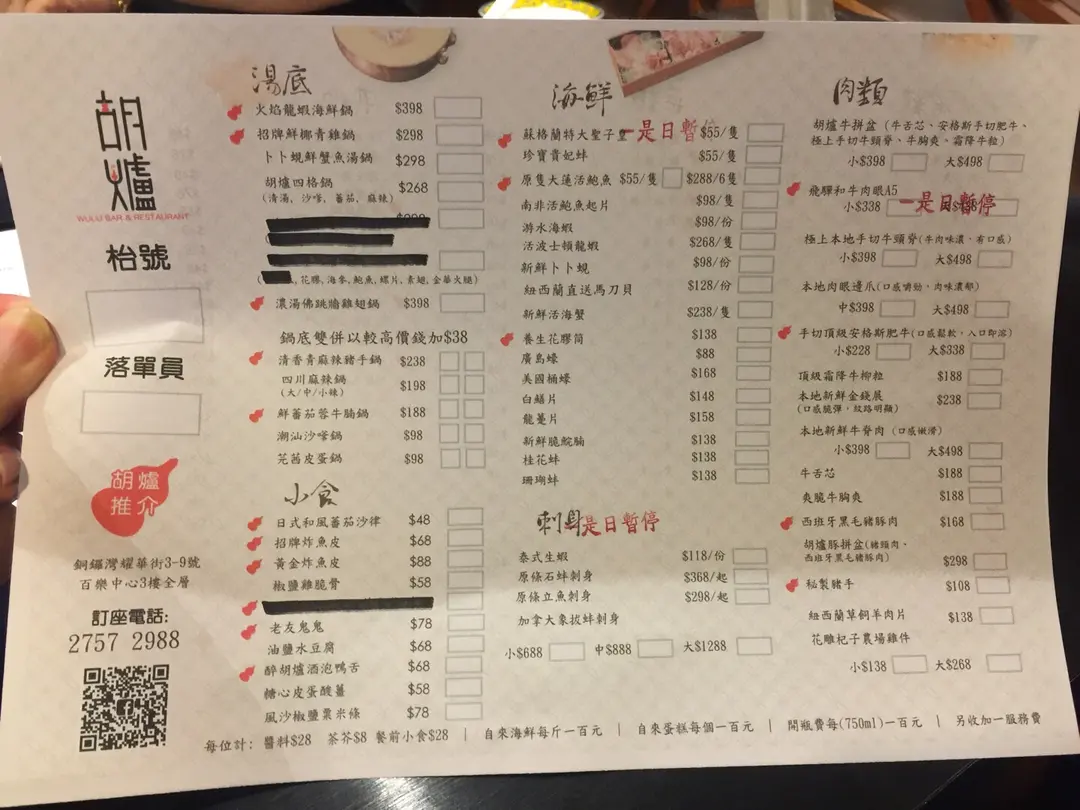 胡爐
WULU BAR & RESTAURANT
枱號
落單員
胡爐
推介
銅鑼灣耀華街3-9號
百樂中心3樓全層
訂座電話:
2757 2988
湯底
火焰龍蝦海鮮鍋 $398
招牌鮮椰青雞鍋 $298
卜卜蜆鮮蟹魚湯鍋 $298
胡爐四格鍋 $268
(清湯, 沙嗲, 蕃茄, 麻辣)
花膠,海參,鮑魚,螺片,素翅,金華火腿)
濃湯佛跳牆雞翅鍋 $398
鍋底雙併以較高價錢加$38
清香青麻辣豬手鍋 $238
四川麻辣鍋 $198
(大/中/小辣)
鮮蕃茄蓉牛腩鍋 $188
潮汕沙嗲鍋 $98
芫茜皮蛋鍋 $98
小食
日式和風蕃茄沙律 $48
招牌炸魚皮 $68
黃金炸魚皮 $88
椒鹽雞脆骨 $58
老友鬼鬼 $78
油鹽水豆腐 $68
醉胡爐酒泡鴨舌 $68
糖心皮蛋酸薑 $58
風沙椒鹽粟米條 $78
海鮮
蘇格蘭特大聖子皇 $55/隻
一是日暫停
珍寶貴妃蚌 $55/隻
原隻大蓮活鮑魚 $55/隻 $288/6隻
南非活鮑魚起片 $98/隻
游水海蝦 $98/份
活波士頓龍蝦 $268/隻
新鮮卜卜蜆 $98/份
紐西蘭直送馬刀貝 $128/份
新鮮活海蟹 $238/隻
養生花膠筒 $138
廣島蠔 $88
美國桶蠔 $168
白鱔片 $148
龍躉片 $158
新鮮脆鯇腩 $138
桂花蚌 $138
珊瑚蚌 $138
刺身
一是日暫停
泰式生蝦 $118/份
原條石蚌刺身 $368/起
原條立魚刺身 $298/起
加拿大象拔蚌刺身
小$688 中$888 大$1288
肉類
胡爐牛拼盆 (牛舌芯、安格斯手切肥牛、
極上手切牛頸脊、牛胸爽、霜降牛粒)
小$398 大$498
飛驒和牛肉眼A5
小$338
一是日暫停
極上本地手切牛頸脊(牛肉味濃,有口感)
小$398 大$498
本地肉眼邊爪(口感嚼勁,肉味濃郁)
中$398 大$498
手切頂級安格斯肥牛(口感鬆軟,入口即溶)
小$228 大$338
頂級霜降牛柳粒 $188
本地新鮮金錢展 $238
(口感脆彈,紋路明顯)
本地新鮮牛脊肉 (口感嫩滑)
小$398 大$498
牛舌芯 $188
爽脆牛胸爽 $188
西班牙黑毛豬豚肉 $168
胡爐豚拼盆(豬頸肉、
西班牙黑毛豬豚肉) $298
秘製豬手 $108
紐西蘭草飼羊肉片 $138
花雕杞子農場雞件
小$138 大$268
每位計: 醬料$28 茶芥$8 餐前小食$28 | 自來海鮮每斤一百元 | 自來蛋糕每個一百元 | 開瓶費每(750ml)一百元 | 另收加一服務費